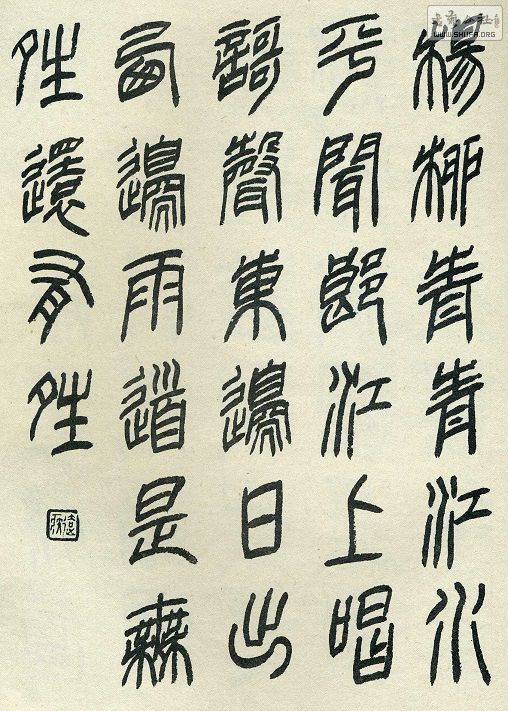 楊柳青青江水
平聞郎江上唱
謌聲東邊日出
西邊雨道是無
夝還有夝
WWW.SHUFA.ORG